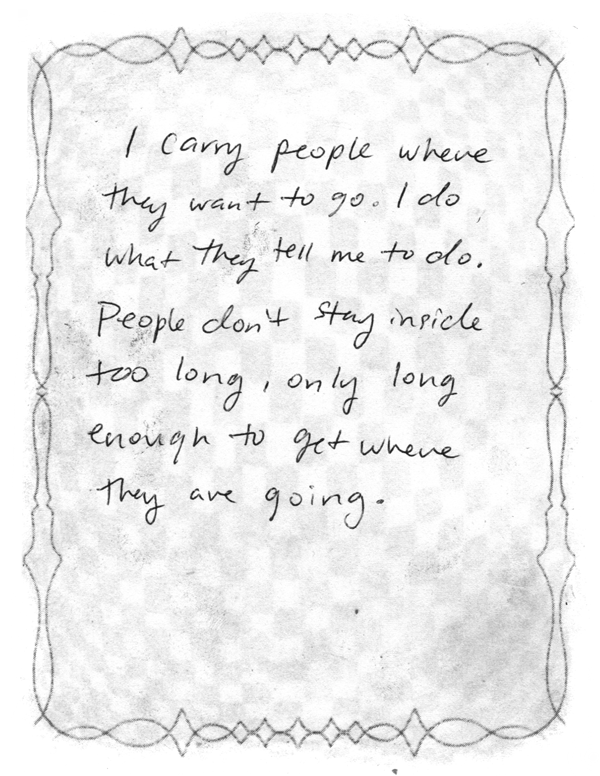 I carry people where
they want to go. I do
what they tell me to do.
People don't stay inside
too long, only long
enough to get where
they are going.